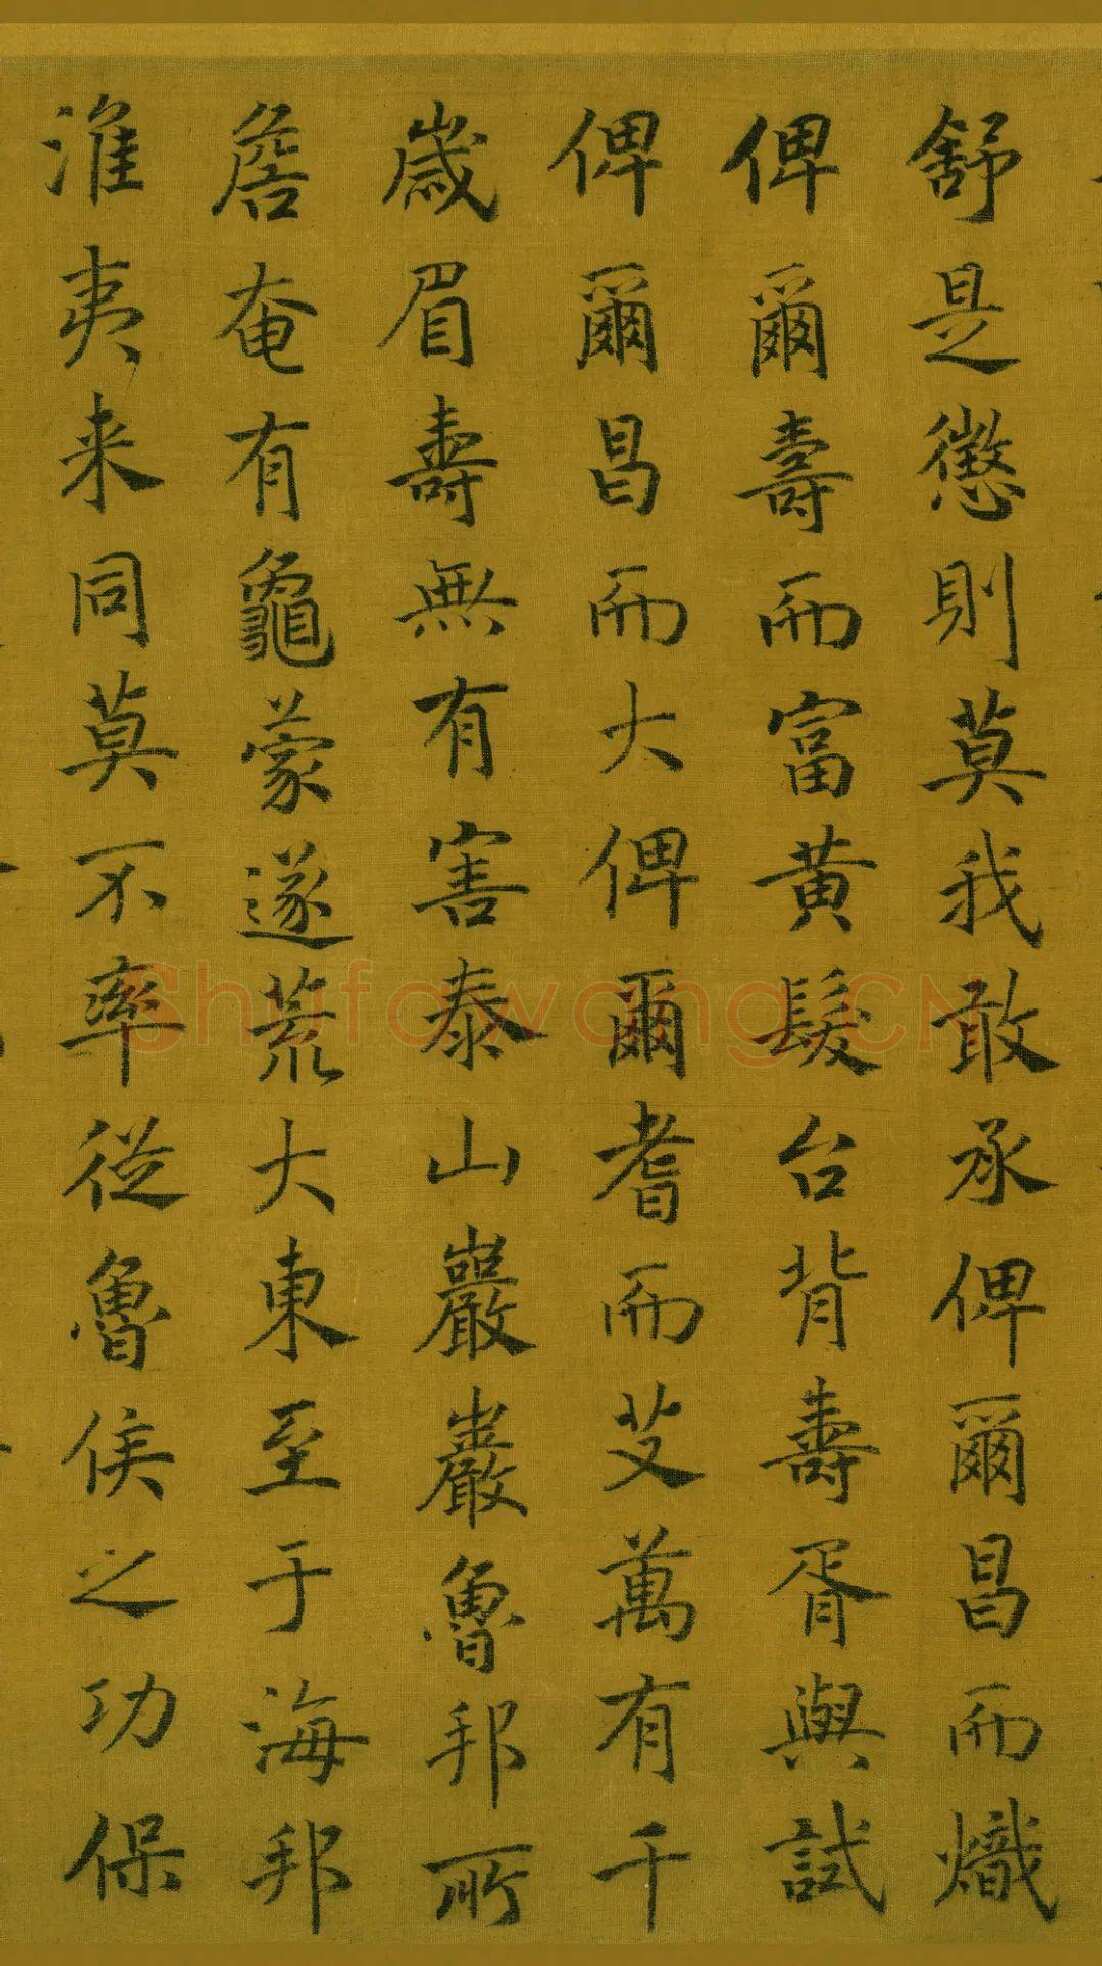 舒是懲則莫我敢承俾爾昌而熾
俾爾壽而富黃髮台背壽胥與試
俾爾昌而大俾爾耆而艾萬有千
歲眉壽無有害泰山巖巖魯邦所
詹奄有龜蒙遂荒大東至于海邦
淮夷来同莫不率從魯侯之功保
Shufawang.CN